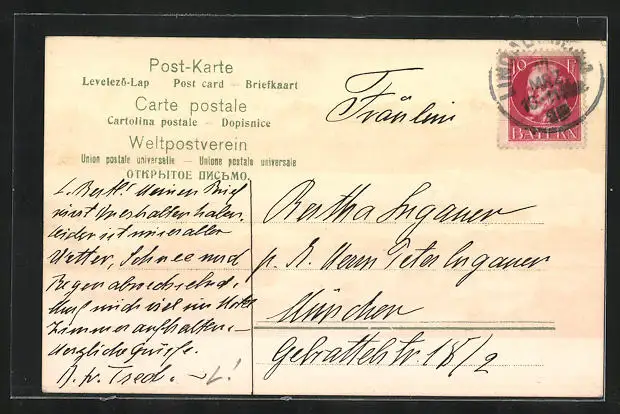 Post-Karte
Levelező-Lap Post card — Briefkaart
Carte postale
Cartolina postale — Dopisnice
Weltpostverein
Union postale universelle — Unione postale universale
ОТКРЫТОЕ ПИСЬМО.
Fräulein
10 PF
BAYERN
LINDAU
MRZ
L. Bertl! Meinen Brief
wirst Du erhalten haben,
leider ist miserables
Wetter, Schnee und
Regen abwechselnd,
muß mich viel im Hotel
Zimmer aufhalten. —
Herzliche Grüsse.
Bertha Inganer
p. A. Herrn Peter Inganer
München
Gebsattelstr. 18/2